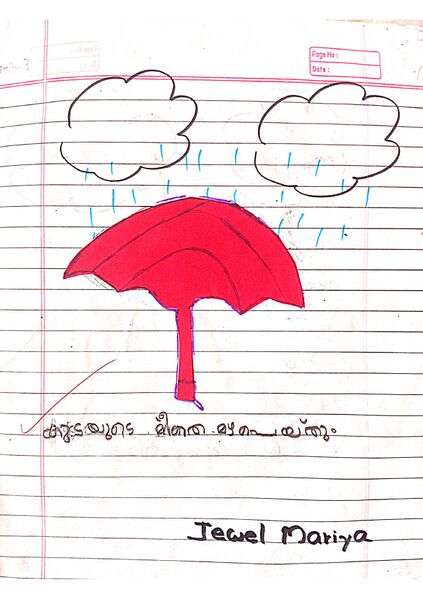 Page No :
Date :
കുടയുടെ മീതെ മഴപെയ്തും
Jewel Mariya